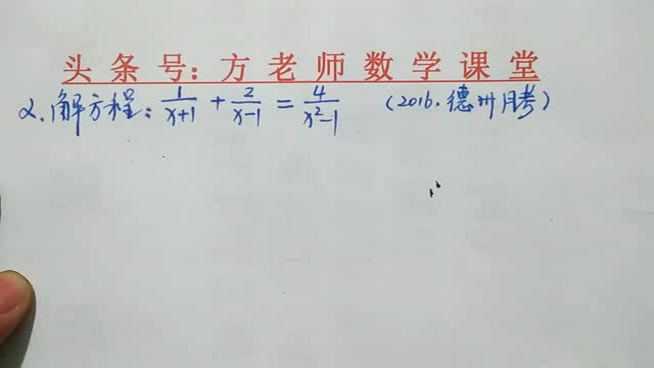 头条号：方老师数学课堂
2.解方程：1/(x+1) + 2/(x-1) = 4/(x²-1) （2016.德州月考）